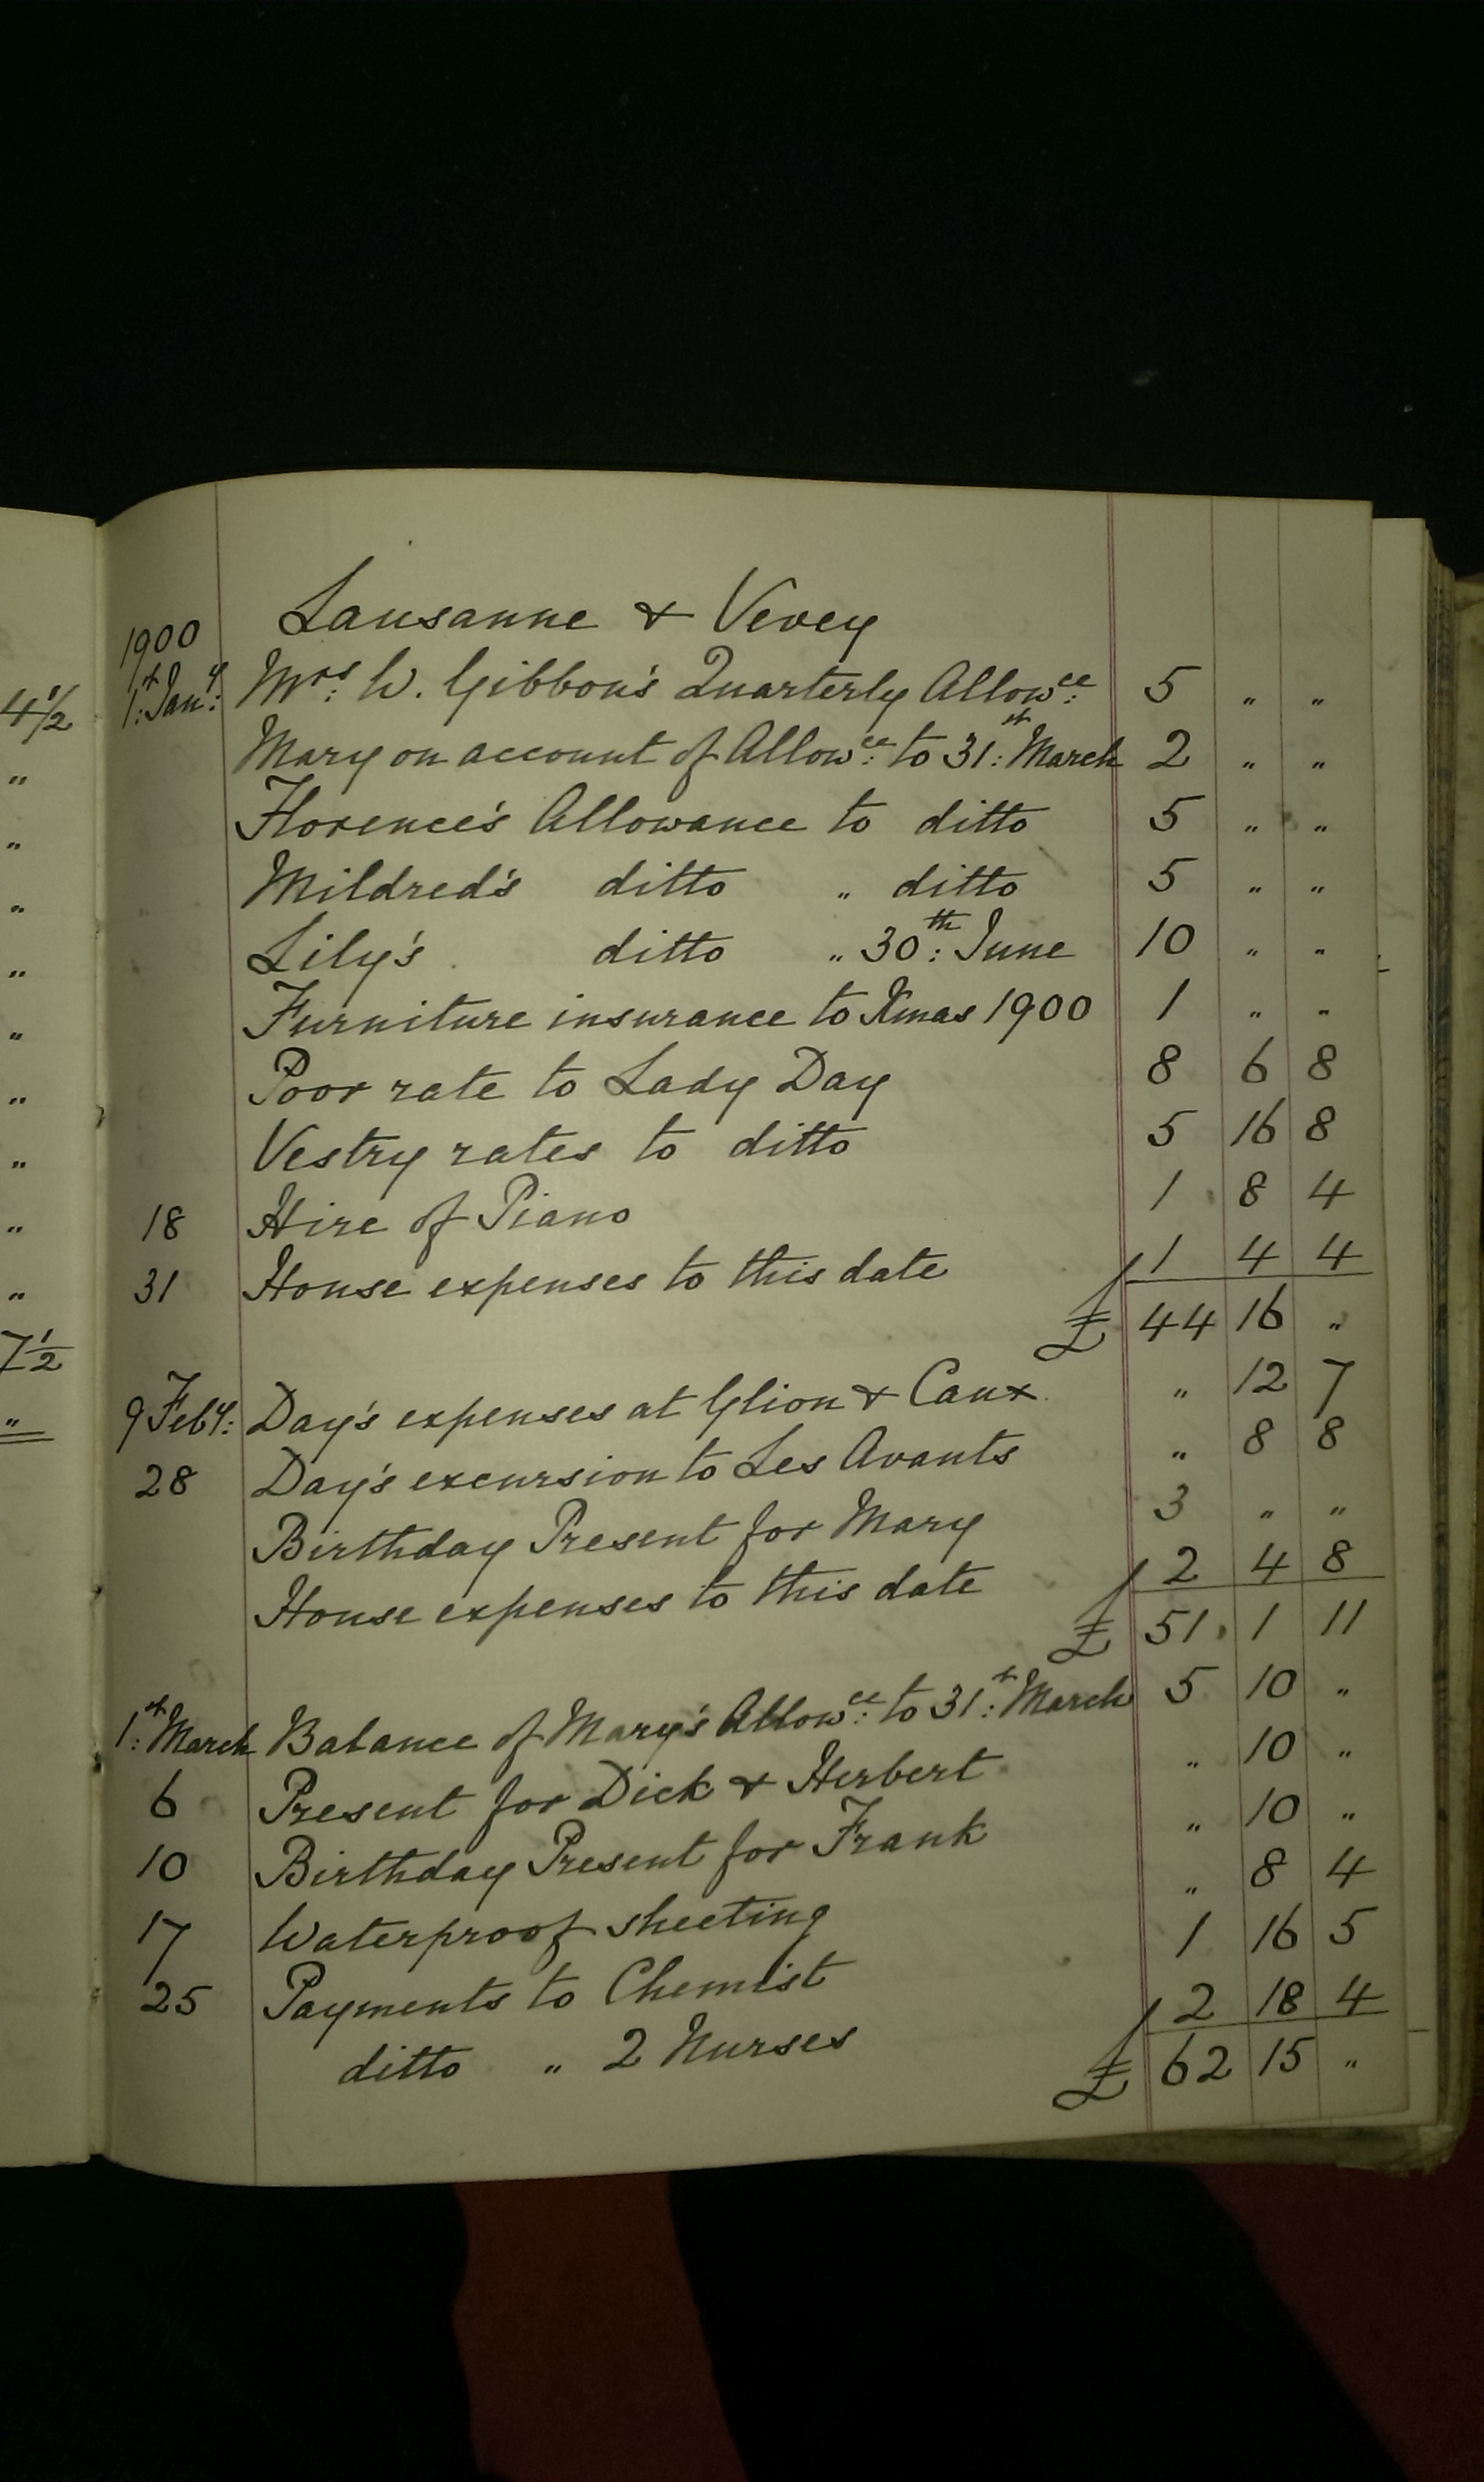 4 1/2
"
"
"
"
"
"
"
"
"
7 1/2
"
Lausanne & Vevey
1900
1st: Jany: Mrs: W. Gibbon's Quarterly Allowce: 5 " "
Mary on account of Allowce: to 31st: March 2 " "
Florence's Allowance to ditto 5 " "
Mildred's ditto " ditto 5 " "
Lily's ditto " 30th: June 10 " "
Furniture insurance to Xmas 1900 1 " "
Poor rate to Lady Day 8 6 8
Vestry rates to ditto 5 16 8
18 Hire of Piano 1 8 4
31 House expenses to this date 1 4 4
£ 44 16 "
9 Feby: Day's expenses at Glion & Caux " 12 7
28 Day's excursion to Les Avants " 8 8
Birthday Present for Mary 3 " "
House expenses to this date 2 4 8
£ 51 1 11
1st: March Balance of Mary's Allowce: to 31st: March 5 10 "
6 Present for Dick & Herbert " 10 "
10 Birthday Present for Frank " 10 "
17 Waterproof sheeting " 8 4
25 Payments to Chemist 1 16 5
ditto " 2 Nurses 2 18 4
£ 62 15 "